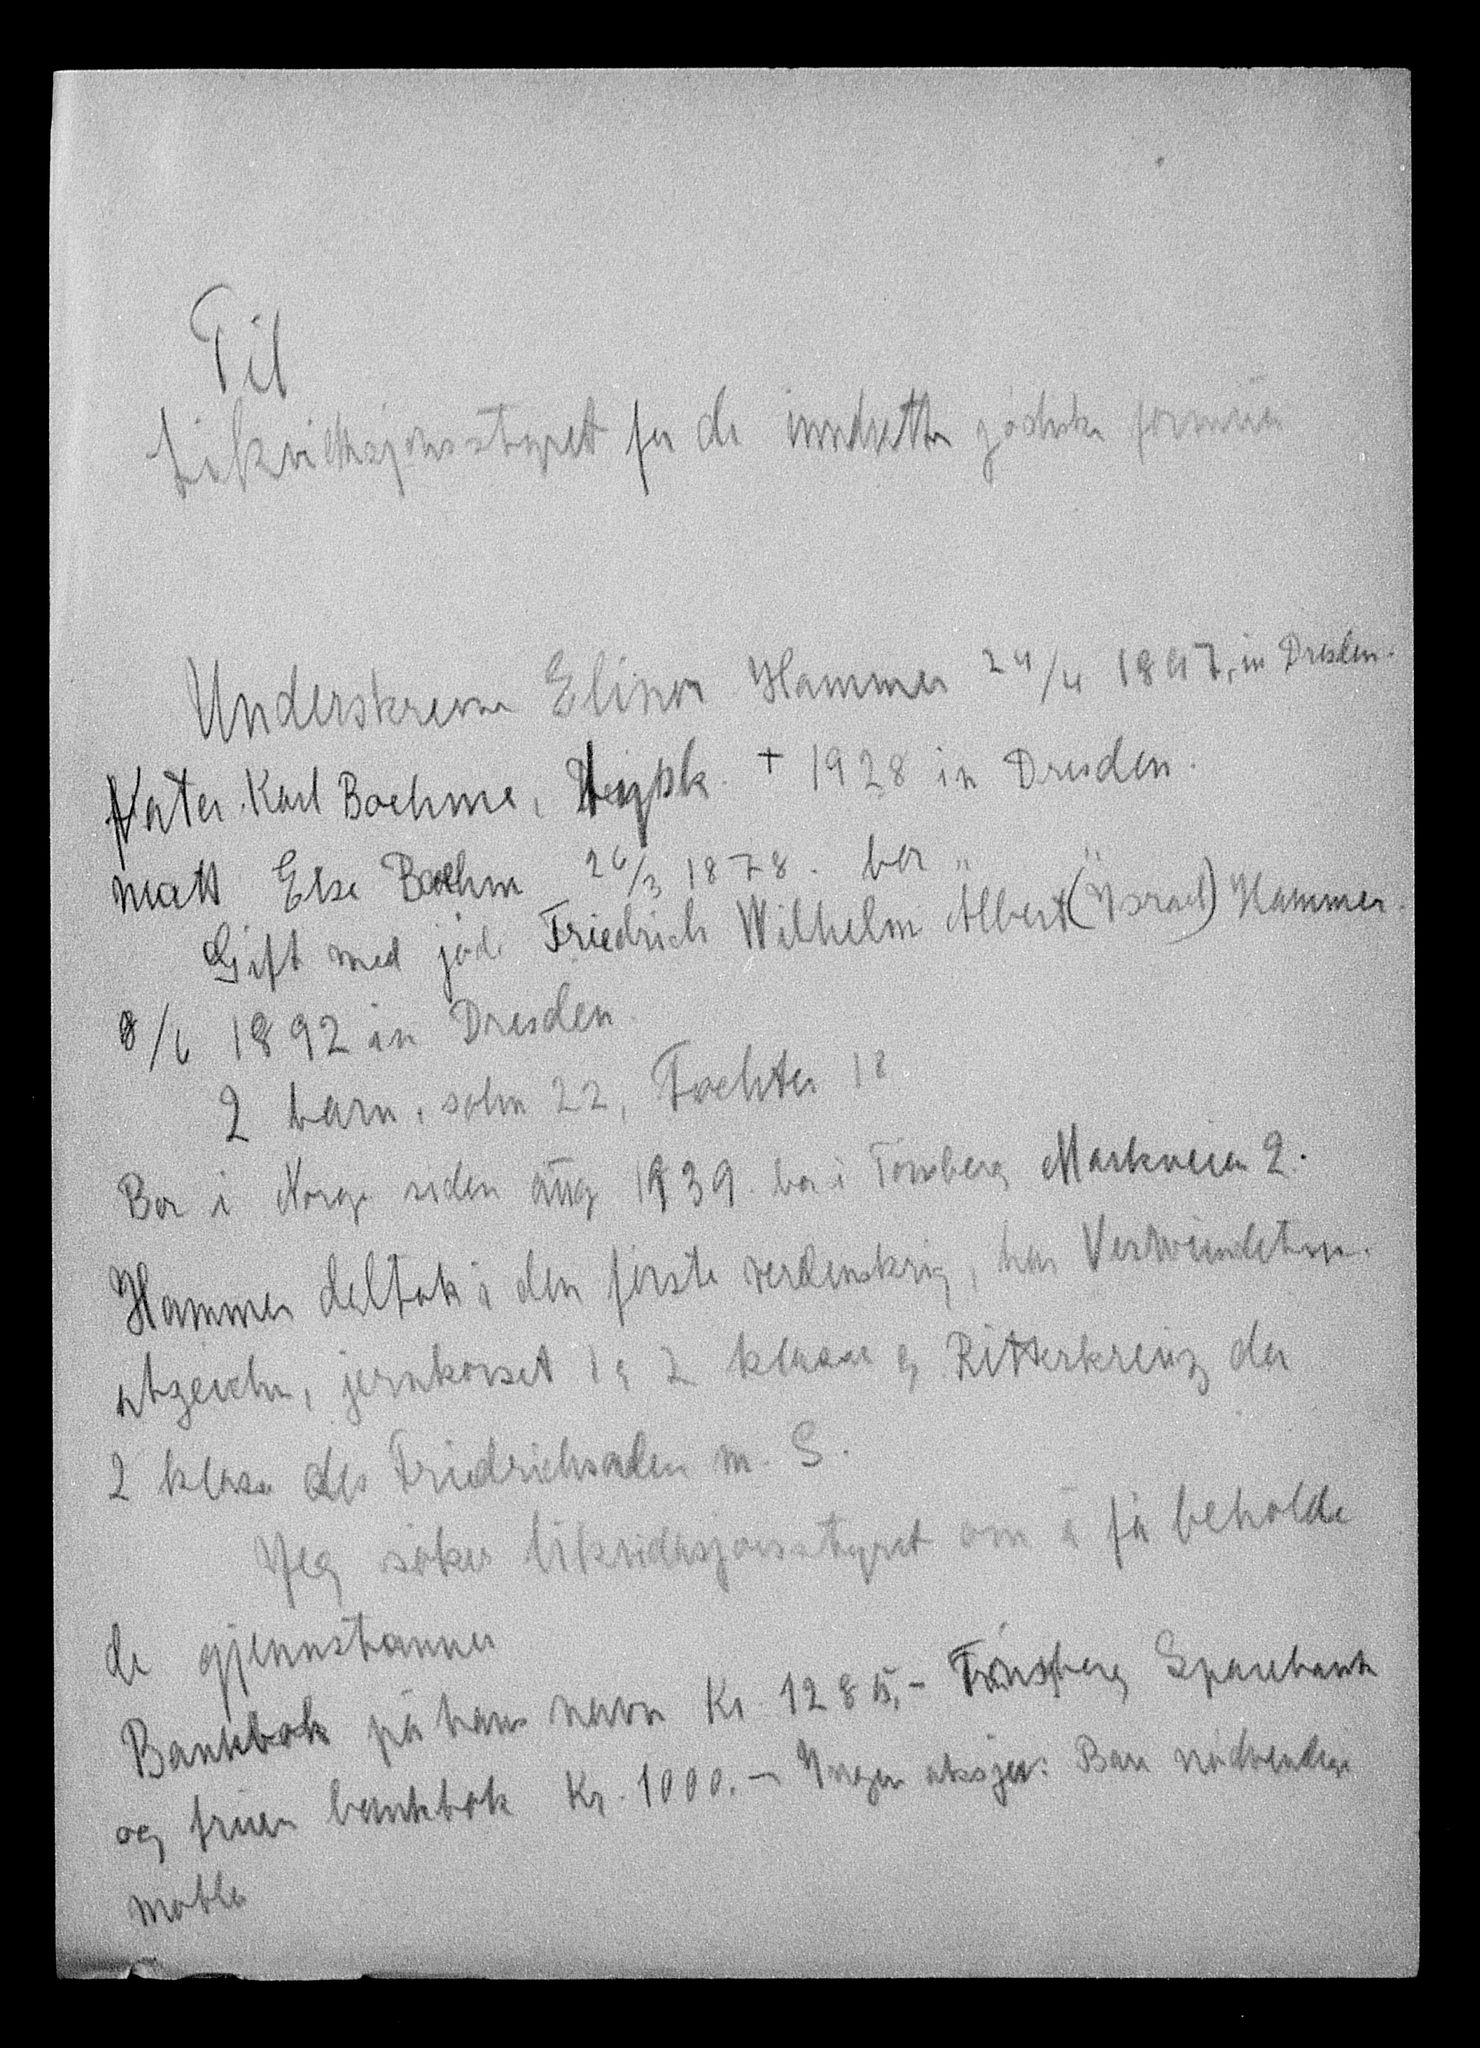 Til
Likvidasjonsstyret for de inndratte jødiske formuer
Underskrevne Elinor Hammer 24/4 1897, in Dresden.
Vater Karl Boehme, † 1928 in Dresden.
Mutt Else Boehm 26/3 1878. bor " "
Gift med jøde Friedrich Wilhelm Albert (Israel) Hammer.
8/6 1892 in Dresden.
2 barn, sohn 22, Tochter 18
Bor i Norge siden aug 1939. bor i Tønsberg Markveien 2.
Hammer deltok i den første verdenskrig, har Verwundeten
abzeichn, jernkorset 1 og 2 klasse og Ritterkreuz der
2 klasse des Friedrichsorden m. S.
Jeg søker likvidasjonsstyret om å få beholde
de gjennstanner
Bankbok på hans navn Kr. 1285,- Tønsberg Sparebank
og fruen bankbok Kr. 1000.- Ingen aksjer. Bare nødvendige
møbler